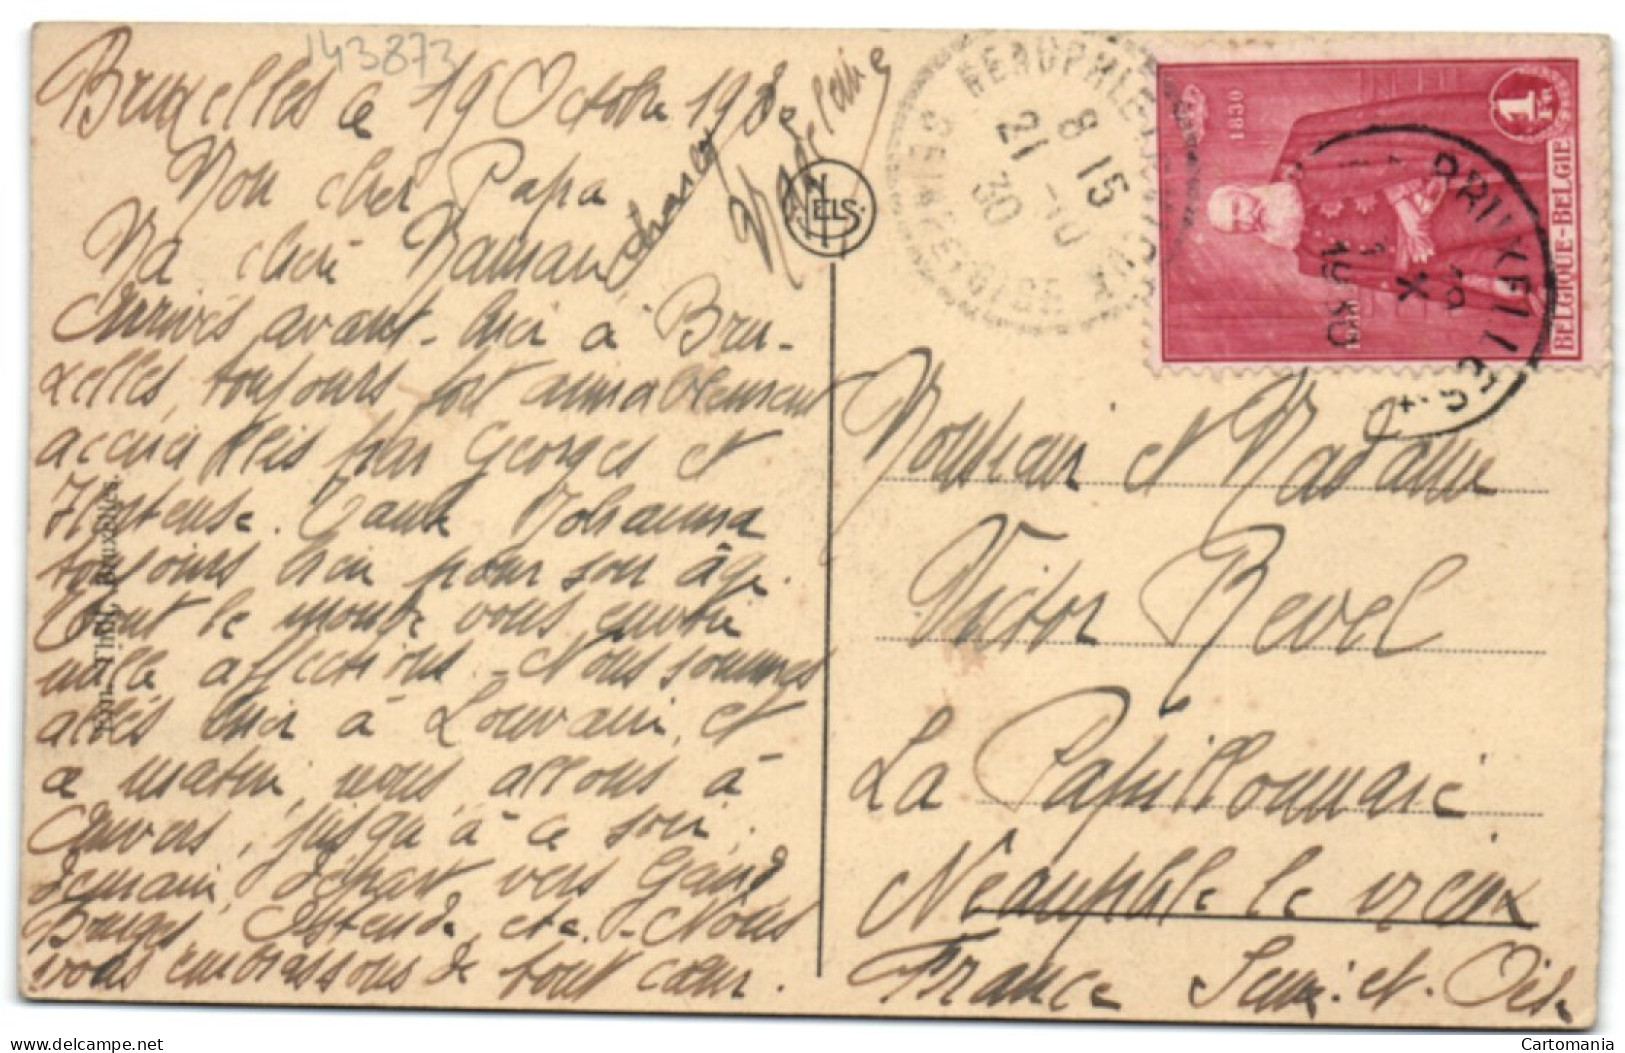 143873
Bruxelles le 19 Octobre 1930
Mon cher Papa
Ma chère Maman
Arrivés avant-hier à Bru-
xelles, toujours fort aimablement
accueillis par Georges et
Hortense. Tante Johanna
toujours bien pour son âge.
Tout le monde vous envoie
mille affections - Nous sommes
allés hier à Louvain, et
ce matin, nous allons à
Anvers, jusqu'à ce soir.
demain, départ vers Gand,
Bruges, Ostende, etc. - Nous
vous embrassons de tout cœur.
Madeleine
NELS
Bruxelles.
NEAUPHLE
SEINE-ET-OISE
8 15
21 -10
30
1830
1930
1 Fr
BELGIQUE-BELGIË
BRUXELLES
19
X
1930
Monsieur et Madame
Victor Revel
La Papillonnaie
Neauphle le vieux
France Seine-et-Oise
Cartomania